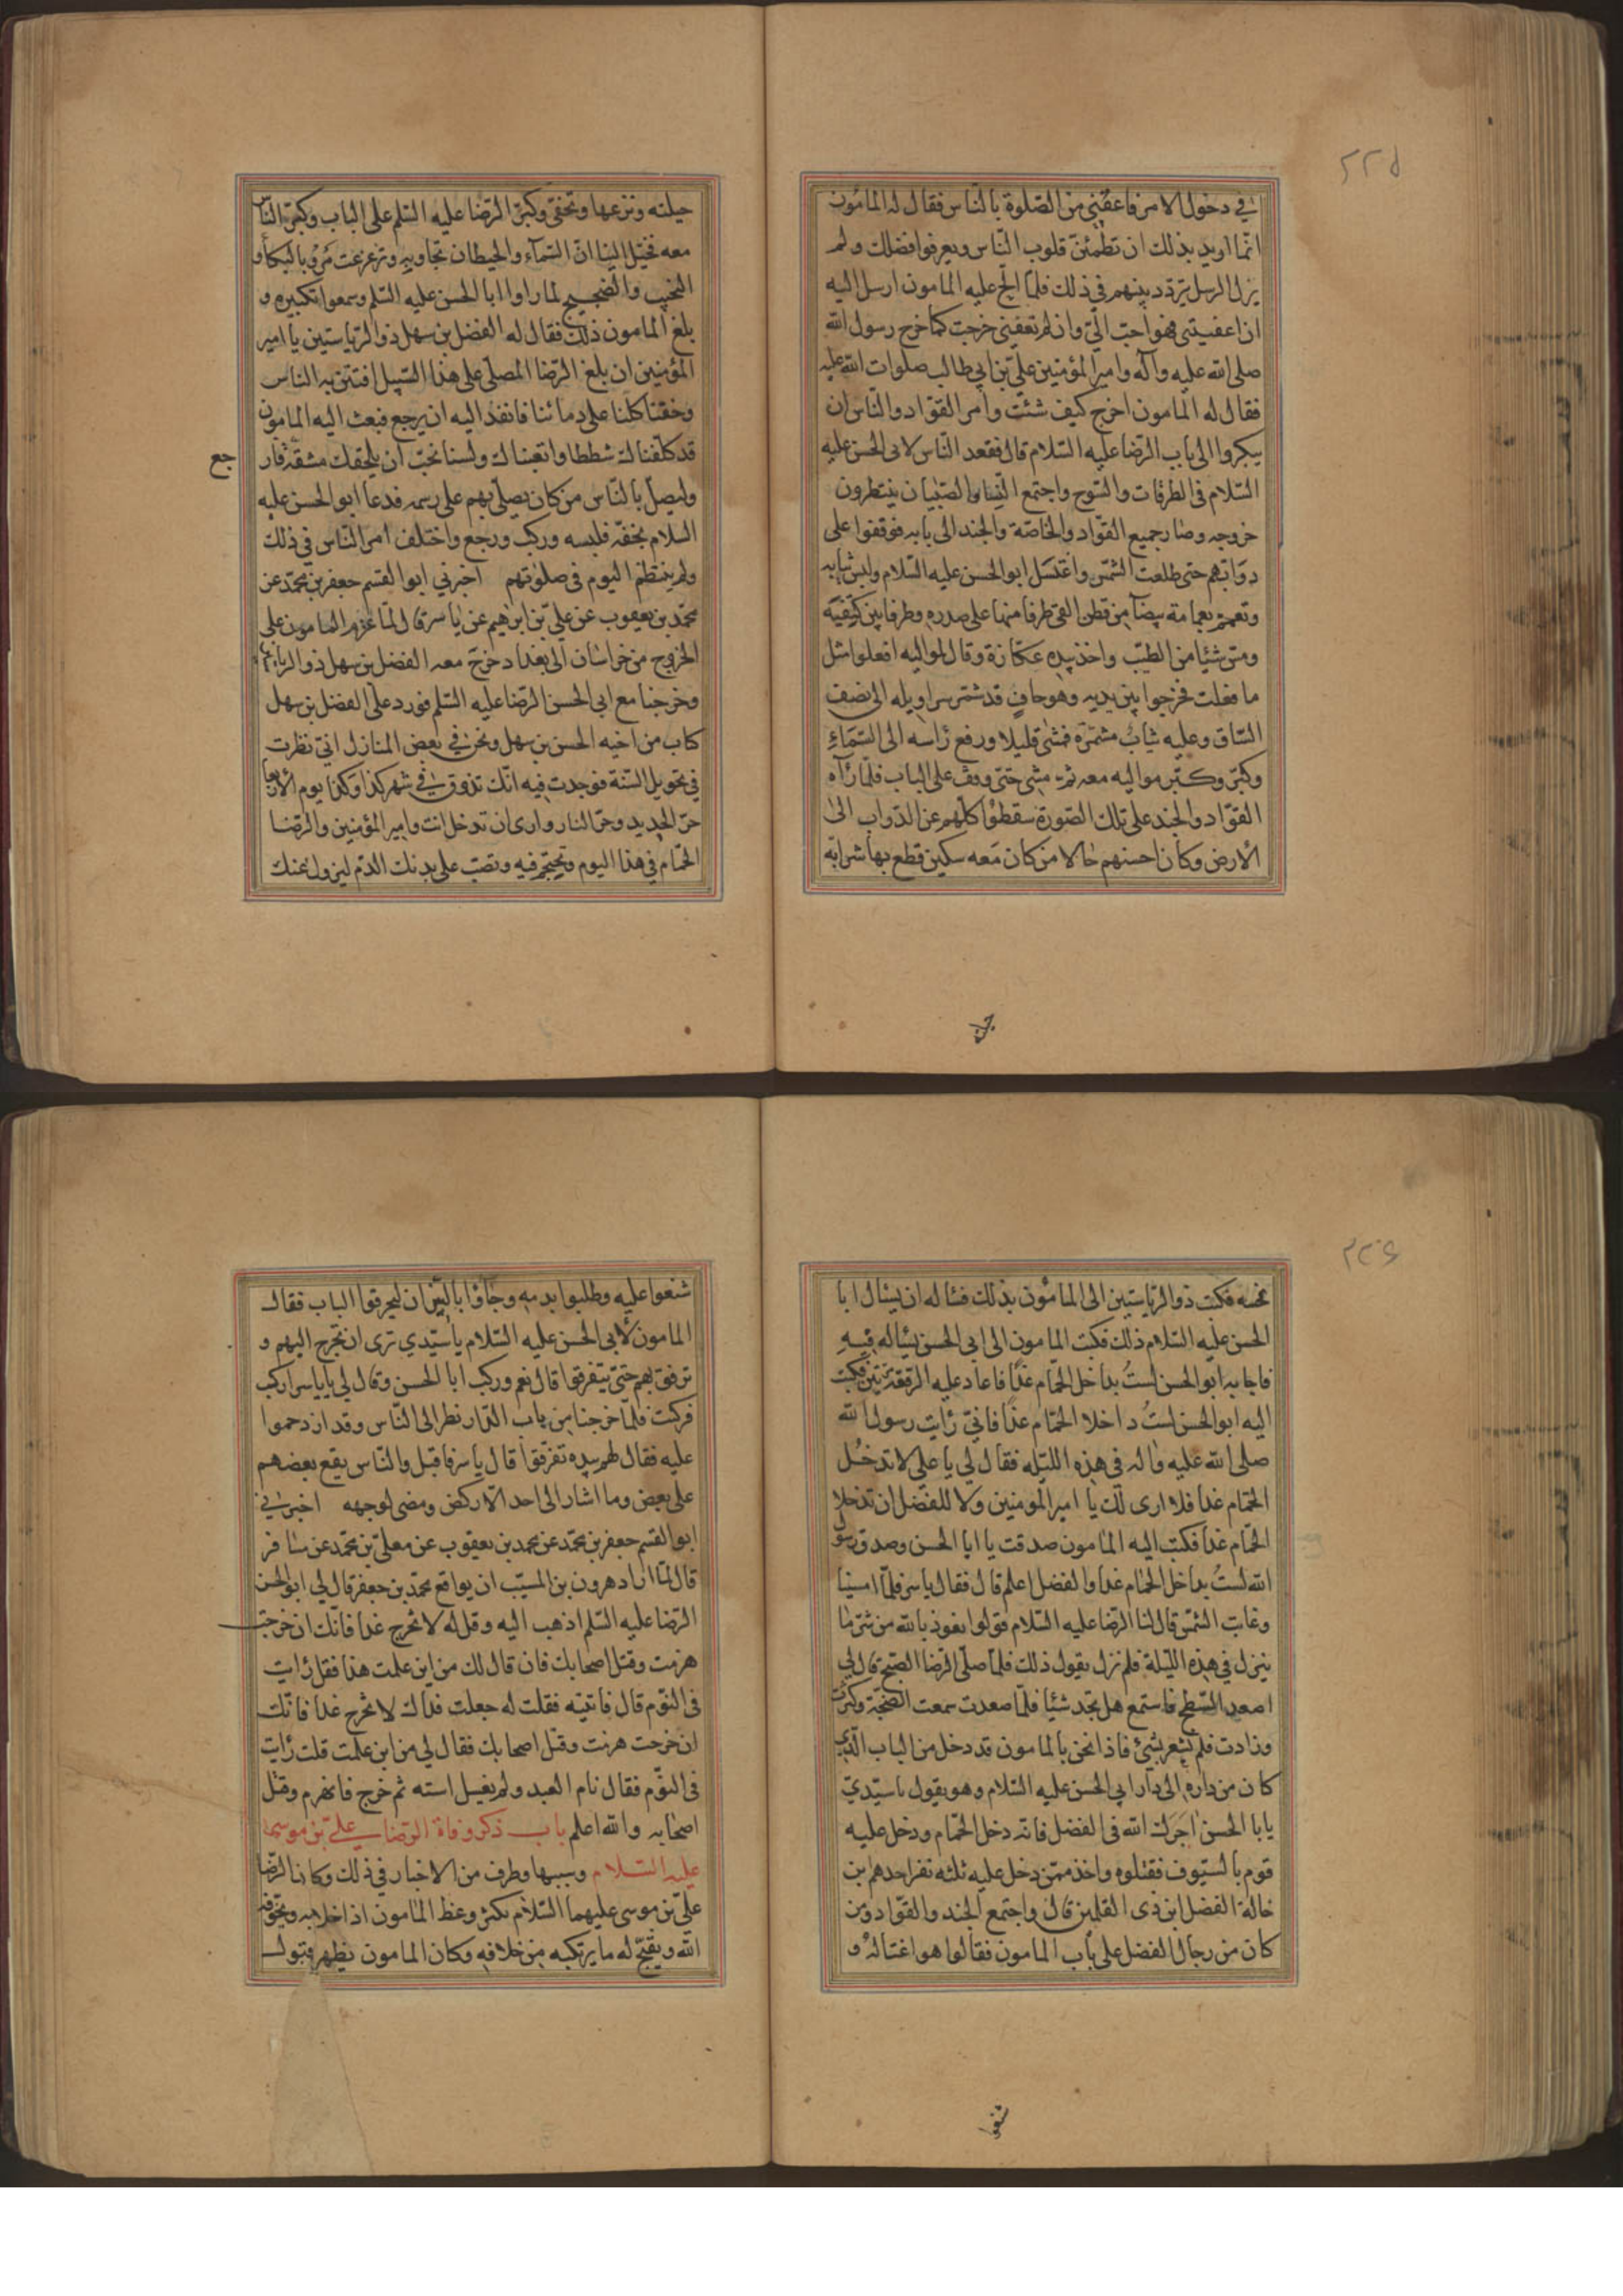 ٢٢٥
في دخول الامر فاعفني من الصلوة بالناس فقال له المامون
انما اريد بذلك ان تطمئن قلوب الناس ويعرفوا فضلك ولم
يزل الرسل يتردد بينهم في ذلك فلما الح عليه المامون ارسل اليه
ان اعفيتني فهو احب الي وان لم تعفني خرجت كما خرج رسول الله
صلى الله عليه وآله وامير المؤمنين علي بن ابي طالب صلوات الله عليه
فقال له المامون اخرج كيف شئت وامر القواد والناس ان
يبكروا الى باب الرضا عليه السلام قال فقعد الناس لابى الحسن عليه
السلام فى الطرقات والسوح واجتمع النساء والصبيان ينتظرون
خروجه وصار جميع القواد والخاصة والجند الى بابه فوقفوا على
دوابهم حتى طلعت الشمس واغتسل ابو الحسن عليه السلام ولبس ثيابه
وتعمم بعمامة بيضآء من قطن القى طرفا منها على صدره وطرفا بين كتفيه
ومس شيئا من الطيب واخذ بيده عكازة وقال لمواليه افعلوا مثل
ما فعلت فخرجوا بين يديه وهو حاف قد شمر سراويله الى نصف
الساق وعليه ثياب مشمرة فمشى قليلا ورفع راسه الى السماء
وكبر وكبر مواليه معه ثم مشى حتى وقف على الباب فلما رآه
القواد والجند على تلك الصورة سقطوا كلهم عن الدواب الى
الارض وكان احسنهم حالا من كان معه سكين قطع بها شرابة
جيلته ونزعها وتحفى وكبر الرضا عليه السلم على الباب وكبر الناس
معه فخيل الينا ان السمآء والحيطان تجاوبه وتزعزعت مرو بالبكاء و
النحيب والضجيج لما راوا ابا الحسن عليه السلم وسمعوا تكبيره و
بلغ المامون ذلك فقال له الفضل بن سهل ذو الرياستين يا امير
المؤمنين ان بلغ الرضا المصلى على هذا السبيل افتتن به الناس
وخفنا كلنا على دمائنا فانفذ اليه ان يرجع فبعث اليه المامون
قد كلفناك شططا واتعبناك ولسنا نحب ان يلحقك مشقة فار
جع
وليصل بالناس من كان يصلى بهم على رسمه فدعا ابو الحسن عليه
السلام بخفه فلبسه وركب ورجع واختلف امر الناس في ذلك
ولم ينتظم اليوم فى صلوتهم اخبرني ابو القسم جعفر بن محمد عن
محمد بن يعقوب عن علي بن ابرهيم عن ياسر قال لما عزم المامون على
الخروج من خراسان الى بغداد خرج معه الفضل بن سهل ذو الرياستين
وخرجنا مع ابي الحسن الرضا عليه السلم فورد على الفضل بن سهل
كتاب من اخيه الحسن بن سهل ونحن في بعض المنازل اني نظرت
في تحويل السنة فوجدت فيه انك تذوق في شهر كذا وكذا يوم الاربعا
حر الحديد وحر النار وارى ان تدخل انت وامير المؤمنين والرضا
الحمام في هذا اليوم وتحتجم فيه وتصب على بدنك الدم ليزول عنك
٢٢٦
نحسه فكتب ذو الرياستين الى المامون بذلك فساله ان يسال ابا
الحسن عليه السلام ذلك فكتب المامون الى ابي الحسن يساله فيه
فاجابه ابو الحسن لست بداخل الحمام غدا فاعاد عليه الرقعة مرتين فكتب
اليه ابو الحسن لست داخلا الحمام غدا فاني رايت رسول الله
صلى الله عليه واله في هذه الليلة فقال لي يا علي لا تدخل
الحمام غدا فلا ارى لك يا امير المومنين ولا للفضل ان تدخلا
الحمام غدا فكتب اليه المامون صدقت يا ابا الحسن وصدق رسول
الله لست بداخل الحمام غدا والفضل اعلم قال فقال ياسر فلما امسينا
وغابت الشمس قال لنا الرضا عليه السلام قولوا نعوذ بالله من شر ما
ينزل في هذه الليلة فلم نزل نقول ذلك فلما صلى الرضا الصبح قال لي
اصعد السطح فاستمع هل تجد شيئا فلما صعدت سمعت الضجة وكثرت
وزادت فلم نشعر بشئ فاذا نحن بالمامون قد دخل من الباب الذي
كان من داره الى دار ابي الحسن عليه السلام وهو يقول يا سيدي
يابا الحسن اجرك الله فى الفضل فانه دخل الحمام ودخل عليه
قوم بالسيوف فقتلوه واخذ ممن دخل عليه ثلثه نفر احدهم بن
خالة الفضل ابن ذى القلمين قال واجتمع الجند والقواد ومن
كان من رجال الفضل على باب المامون فقالوا هو اغتاله و
شنعوا
شنعوا عليه وطلبوا بدمه وجاؤا بالنيران ليحرقوا الباب فقال
المامون لابي الحسن عليه السلام يا سيدي ترى ان تخرج اليهم و
ترفق بهم حتى يتفرقوا قال نعم وركب ابا الحسن وقال لي يا ياسر اركب
فركبت فلما خرجنا من باب الدار نظر الى الناس وقد ازدحموا
عليه فقال لهم بيده تفرقوا قال ياسر فاقبل والناس يقع بعضهم
على بعض وما اشار الى احد الا ركض ومضى لوجهه اخبرني
ابو القسم جعفر بن محمد عن محمد بن يعقوب عن معلى بن محمد عن مسافر
قال لما اراد هرون بن المسيب ان يواقع محمد بن جعفر قال لي ابو الحسن
الرضا عليه السلم اذهب اليه وقل له لا تخرج غدا فانك ان خرجت
هزمت وقتل اصحابك فان قال لك من اين علمت هذا فقل رايت
فى النوم قال فاتيته فقلت له جعلت فداك لا تخرج غدا فانك
ان خرجت هزمت وقتل اصحابك فقال لي من اين علمت قلت رايت
فى النوم فقال نام العبد ولم يغسل استه ثم خرج فانهزم وقتل
اصحابه والله اعلم باب ذكر وفاة الرضا علي بن موسى
عليه السلام وسببها وطرف من الاخبار في ذلك وكان الرضا
علي بن موسى عليهما السلام يكثر وعظ المامون اذا خلا به ويخوفه
الله ويقبح له ما يرتكبه من خلافه وكان المامون يظهر قبول